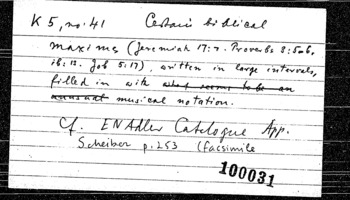 K 5, no. 41 Certain biblical
maxims (Jeremiah 17:7. Proverbs 3:5ab,
ib: 12. Job 5:17), written in large intervals,
filled in with what seems to be an
unusual musical notation.
Cf. ENAdler Catalogue App.
Scheiber p. 253 (facsimile
100031